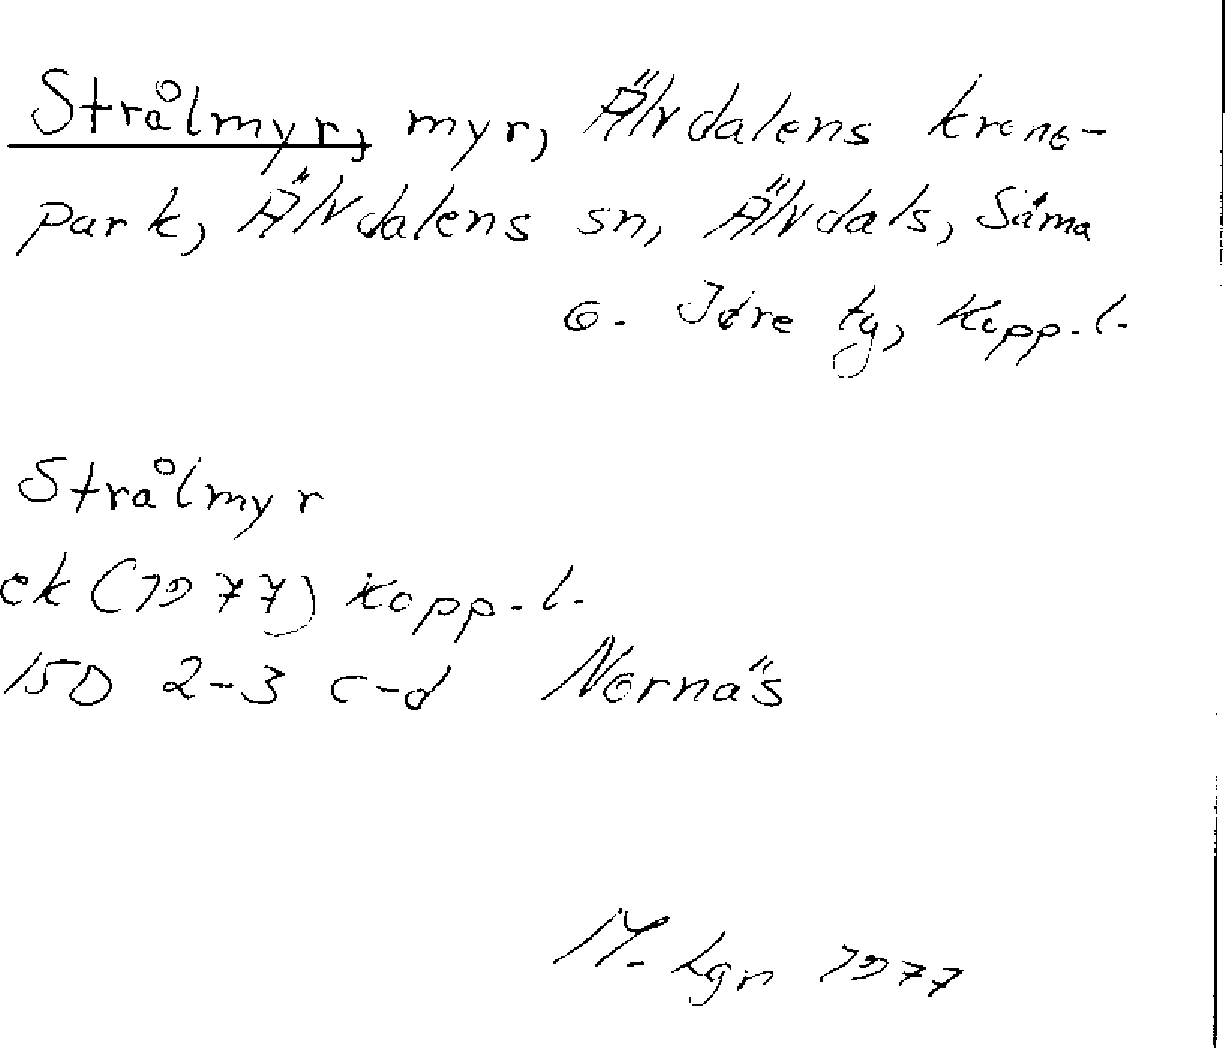 Strålmyr, myr, Älvdalens krono-
park, Älvdalens sn, Älvdals, Särna
o. Idre tg, Kopp.l.
Strålmyr
ek (1977) Kopp.l.
15D 2-3 c-d Nornäs
M. Lgn 1977